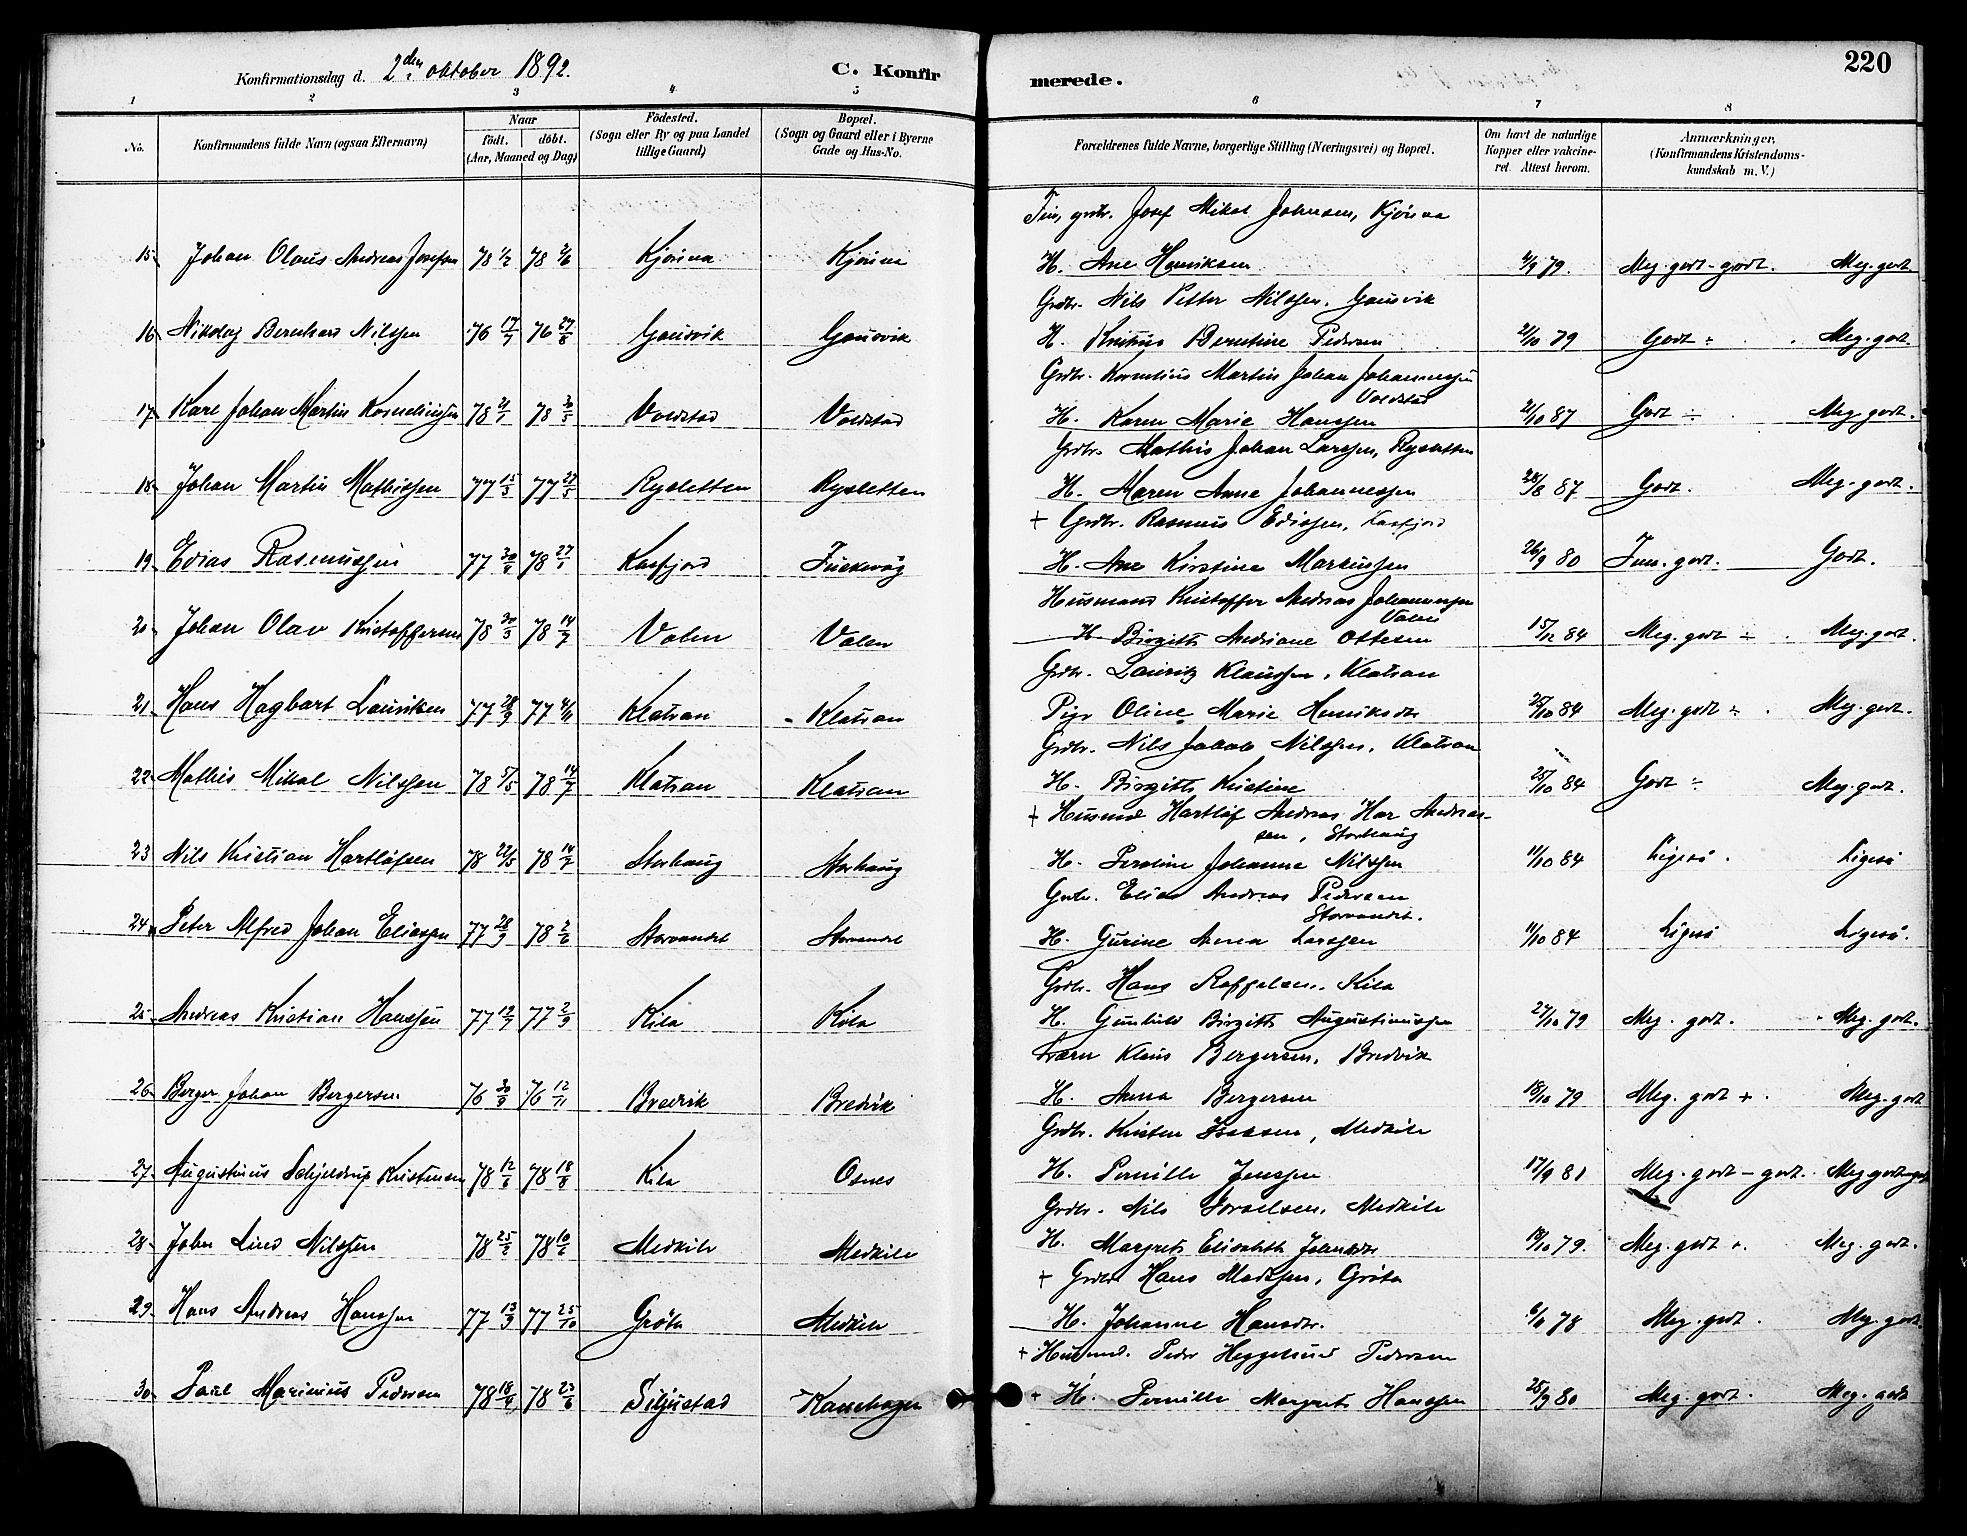 220
Konfirmationsdag d. 2den oktober 1892. C. Konfirmerede.
1 2 3 4 5 6 7 8
No. Konfirmandens fulde Navn (ogsaa Efternavn) Naar födt. döbt. (Aar, Maaned og Dag) Födested. (Sogn eller By og paa Landet tillige Gaard) Bopæl. (Sogn og Gaard eller i Byerne Gade og Hus-No. Forældrenes fulde Navne, borgerlige Stilling (Næringsvei) og Bopæl. Om havt de naturlige Kopper eller vakcineret. Attest herom. Anmærkninger, (Konfirmandens Kristendomskundskab m. V.)
grdbr. Josef Mikal Johnsen, Kjönna
15 Johan Olaus Andreas Josefsen 78 1/2 78 2/6 Kjönna Kjönna H. Ane Henriksen 4/9 79. Meg. godt-godt. Meg. godt.
Grdbr. Nils Petter Nilssen, Gausvik
16 Nikolay Bernhard Nilssen 76 17/7 76 27/8 Gausvik Gausvik H. Berntine Pedersen 21/10 79 Godt ÷ Meg. godt.
Grdbr. Kornelius Martin Johan Johannessen
Voldstad
17 Karl Johan Martin Korneliussen 78 21/1 78 30/5 Voldstad Voldstad H. Karen Marie Hanssen 21/10 87 Godt ÷ Meg. godt.
Grdbr. Mathis Johan Larssen, Rysletten
18 Johan Martin Mathissen 77 15/3 77 27/5 Rysletten Rysletten H. Maren Anne Johannessen 28/8 87 Godt. Meg. godt.
+ Grdbr. Rasmus Edissen, Kasfjord
19 Edias Rasmussen 77 78 27/1 Kasfjord H. Ane Kirstine Markussen 26/9 80 Godt.
Husmand Kristoffer Andreas Johannessen
Valen
20 Johan Olav Kristoffersen 78 30/3 78 14/7 Valen Valen H. Birgitte Andriane Ottesen 15/12 84 Meg. godt ÷ Meg. godt.
Grdbr. Lauritz Klaussen, Klatran
21 Hans Hagbart Lauritsen 77 28/9 77 4/11 Klatran Klatran Pige Oline Marie Henriksdtr 25/10 84 Meg. godt ÷ Meg. godt.
Grdbr. Nils Jakob Nilssen, Klatran
22 Mathis Mikal Nilssen 78 5/5 78 14/7 Klatran Klatran H. Birgitte Kristine 25/10 84 Godt ÷ Meg. godt.
+ Husmd Hartlöf Andreas Har Andreas-
sen, Storhaug
23 Nils Kristian Hartlöfsen 78 22/5 78 14/7 Storhaug Storhaug H. Johanne Nilssen 11/10 84 Ligeså Ligeså
Grdbr. Elias Andreas Pedersen
Storvandet.
24 Peter Alfred Johan Eliassen 77 28/9 78 2/6 Storvandet Storvandet H. Gurine Anna Larssen 11/10 84 Ligeså Ligeså.
Grdbr. Hans Roffelsen, Kila
25 Andreas Kristian Hanssen 77 19/7 77 2/9 Kila Kila H. Gunhild Birgitte Augustinussen 27/10 79 Meg. godt. Meg. godt.
Klaus Bergersen, Bredvik
26 Berger Johan Bergersen 76 30/9 76 12/11 Bredvik Bredvik H. Anna Bergersen 18/10 79 Meg. godt + Meg. godt
Grdbr. Kristen Isaksen, Medkile
27 Augustinus Schjeldrup Kristensen 78 12/6 78 18/8 Kila Osnes H. Pernille Jenssen 17/9 81 Meg. godt - godt. Meg godt-godt
Grdbr. Nils Torselsen, Medkile
28 John Lind Nilssen 78 25/2 78 10/6 Medkile Medkile H. Margrete Elisabeth Johnsdtr 19/10 79. Meg. godt +. Meg. godt.
+ Grdbr Hans Madssen, Gröta
29 Hans Andreas Hanssen 77 13/9 77 25/10 Gröta Medkile H. Johanne Hansdtr. 78 Meg. godt. Meg. godt.
+ Husmd. Peder Heggelund Pedersen
30 Paul Marinius Pedersen 78 18/4 78 23/6 Siljustad Kanebogen + H. Pernille Margrete Hanssen 25/9 80 Meg. godt. Meg. godt